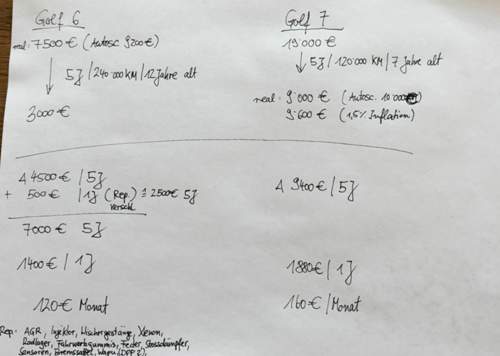 Golf 6
real: 7500 € (Autosc. 9200€)
5J / 240'000 KM / 12 Jahre alt
3000 €
Golf 7
19'000 €
5J / 120'000 KM / 7 Jahre alt
real: 9'000 € (Autosc. 10'000€)
9'600 € (1,5% Inflation)
Δ 4500 € / 5J
+ 500 € / 1J (Rep.) ≙ 2500€ 5J
Verschl.
7000 € 5J
1400 € / 1J
120 € Monat
Δ 9400 € / 5J
1880 € / 1J
160 € / Monat
Rep: AGR, Injektor, Mischergestänge, Xenon,
Radlager, Fahrwerkgummis, Feder, Stossdämpfer,
Sensoren, Bremssattel, (DPF?)